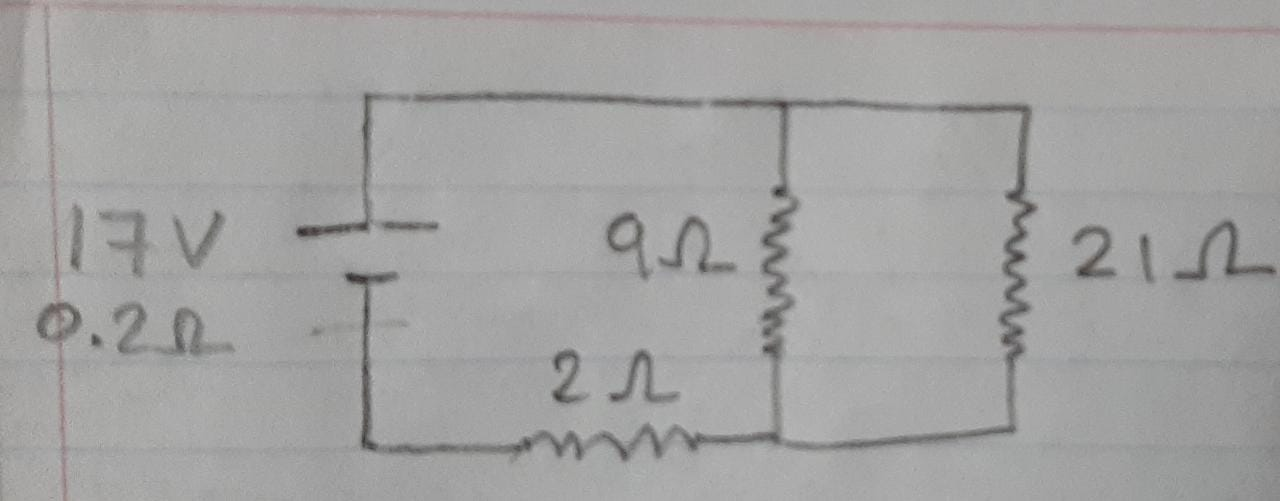 17V
0.2Ω
9Ω
21Ω
2Ω